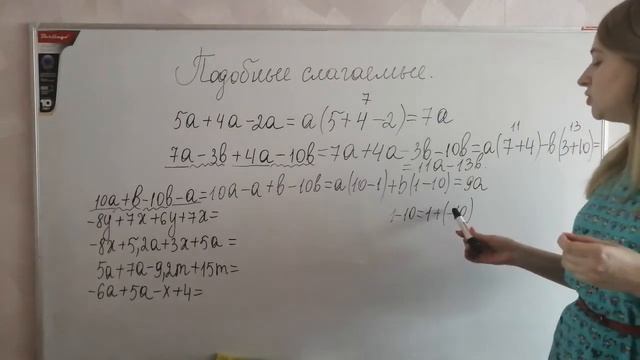 Berlingo
Подобные слагаемые.
7
5a+4a-2a=a(5+4-2)=7a
11 13
7a-3b+4a-10b=7a+4a-3b-10b=a(7+4)-b(3+10)=
=11a-13b
10a+b-10b-a=10a-a+b-10b=a(10-1)+b(1-10)=9a
-8y+7x+6y+7x=
1-10=1+(-10)
-8x+5,2a+3x+5a=
5a+7a-9,2m+15m=
-6a+5a-x+4=